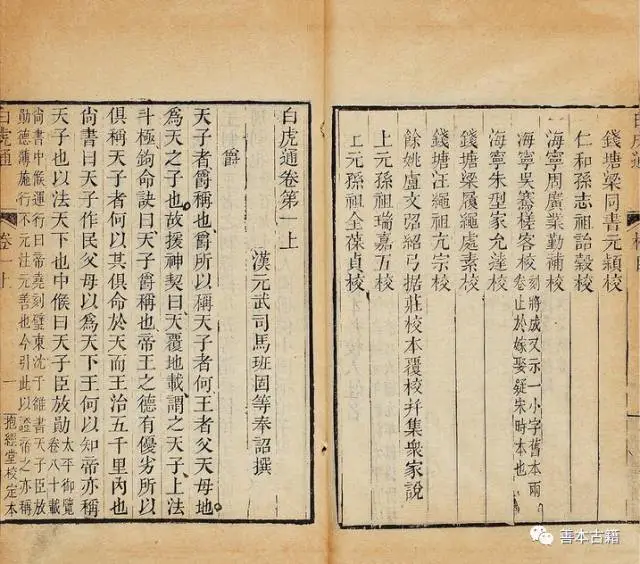 白虎通
錢塘梁同書元穎校
仁和孫志祖詒穀校
海寧周廣業勤補校
海寧吳騫槎客校
刻將成又示一小字舊本兩
卷止於嫁娶疑宋時本也
海寧朱型家允達校
錢塘梁履繩處素校
錢塘汪繩祖亢宗校
餘姚盧文弨紹弓据莊校本覆校幷集衆家說
上元孫祖瑞嘉五校
元孫祖全葆貞校
白虎通卷第一上
漢元武司馬班固等奉詔撰
爵
天子者爵稱也爵所以稱天子者何王者父天母地
為天之子也故援神契曰天覆地載謂之天子上法
斗極鉤命訣曰天子爵稱也帝王之德有優劣所以
俱稱天子者何以其俱命於天而王治五千里內也
尚書曰天子作民父母以為天下王何以知帝亦稱
天子也以法天下也中候曰天子臣放勛
太平御覽
卷八十載
尚書中候運行曰帝堯刻璧東沈于雒書天子臣放
勛德薄施行不元注元善也今引此以證帝之亦稱
白虎通
卷一上
一
抱經堂校定本
善本古籍